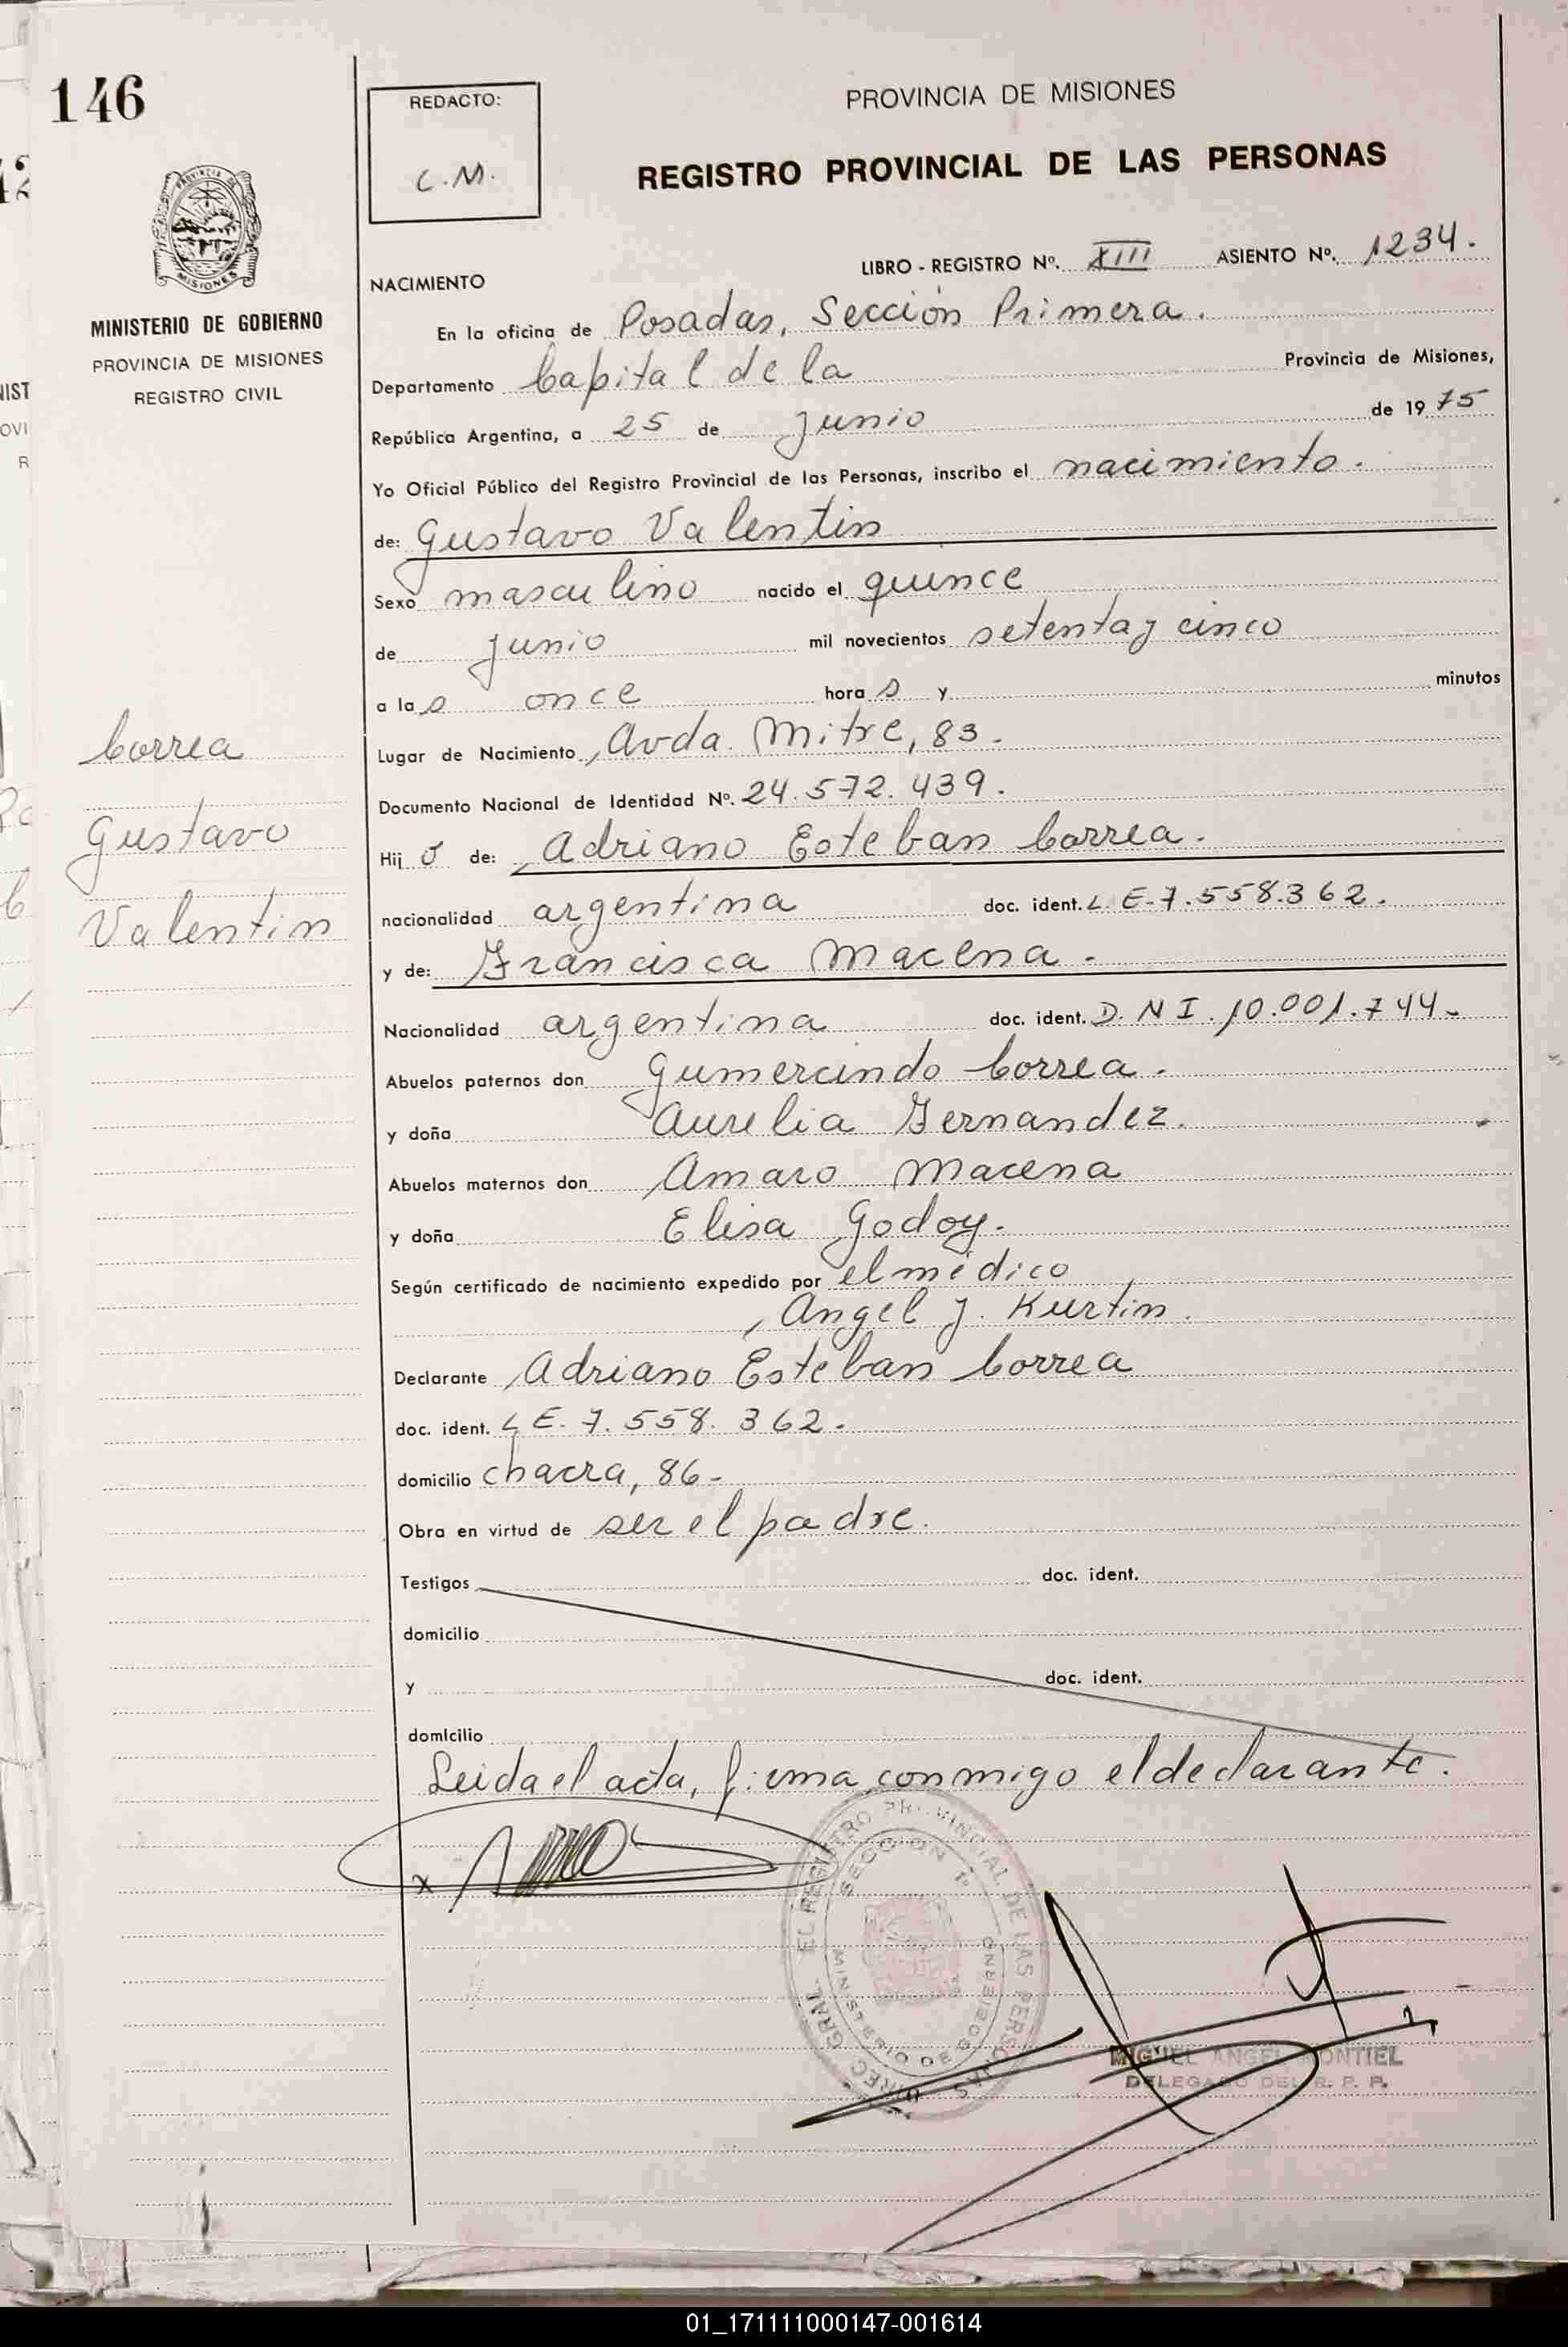 146
REDACTO:
C.M.
PROVINCIA DE MISIONES
REGISTRO PROVINCIAL DE LAS PERSONAS
LIBRO - REGISTRO Nº. XIII ASIENTO Nº. 1234.
MISIONES
MINISTERIO DE GOBIERNO
PROVINCIA DE MISIONES
REGISTRO CIVIL
NACIMIENTO
En la oficina de Posadas, Sección Primera.
Departamento Capital de la Provincia de Misiones,
República Argentina, a 25 de junio de 1975
Yo Oficial Público del Registro Provincial de las Personas, inscribo el nacimiento.
de: Gustavo Valentin
Sexo masculino nacido el quince
de junio mil novecientos setenta y cinco
a las once horas y minutos
Correa
Gustavo
Valentin
Lugar de Nacimiento Avda. Mitre, 83.
Documento Nacional de Identidad Nº. 24.572.439.
Hijo de: Adriano Esteban Correa.
nacionalidad argentina doc. ident. L.E-7.558.362.
y de: Francisca Macena.
Nacionalidad argentina doc. ident. D.N I. 10.001.744-
Abuelos paternos don Gumercindo Correa.
y doña Aurelia Fernandez.
Abuelos maternos don Amaro Macena
y doña Elisa Godoy.
Según certificado de nacimiento expedido por el médico
Angel J. Kurtin.
Declarante Adriano Esteban Correa
doc. ident. L E. 7.558.362.
domicilio chacra, 86-
Obra en virtud de ser el padre.
Testigos doc. ident.
domicilio
y doc. ident.
domicilio
Leida el acta, firma conmigo el declarante.
x
DIREC. GRAL. EL REGISTRO PROVINCIAL DE LAS PERSONAS
SECCION 1º
MINISTERIO DE GOBIERNO
MIGUEL ANGEL MONTIEL
DELEGADO DEL R. P. P.
01_171111000147-001614